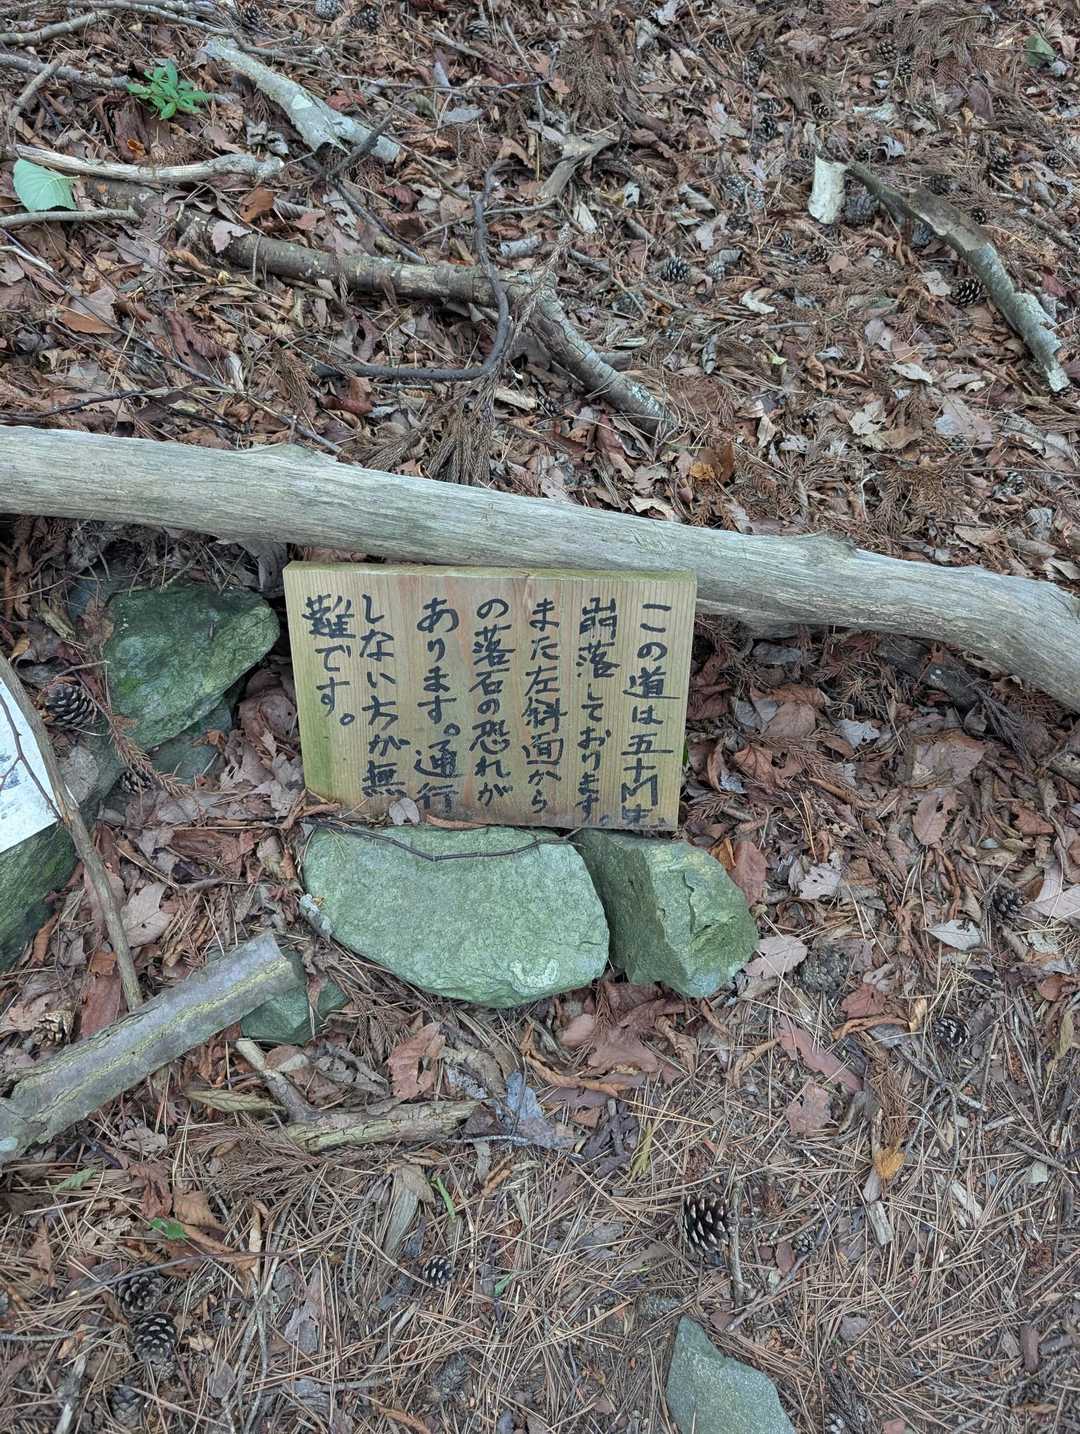 この道は五十M先、
崩落しております。
また左斜面から
の落石の恐れが
あります。通行
しない方が無
難です。